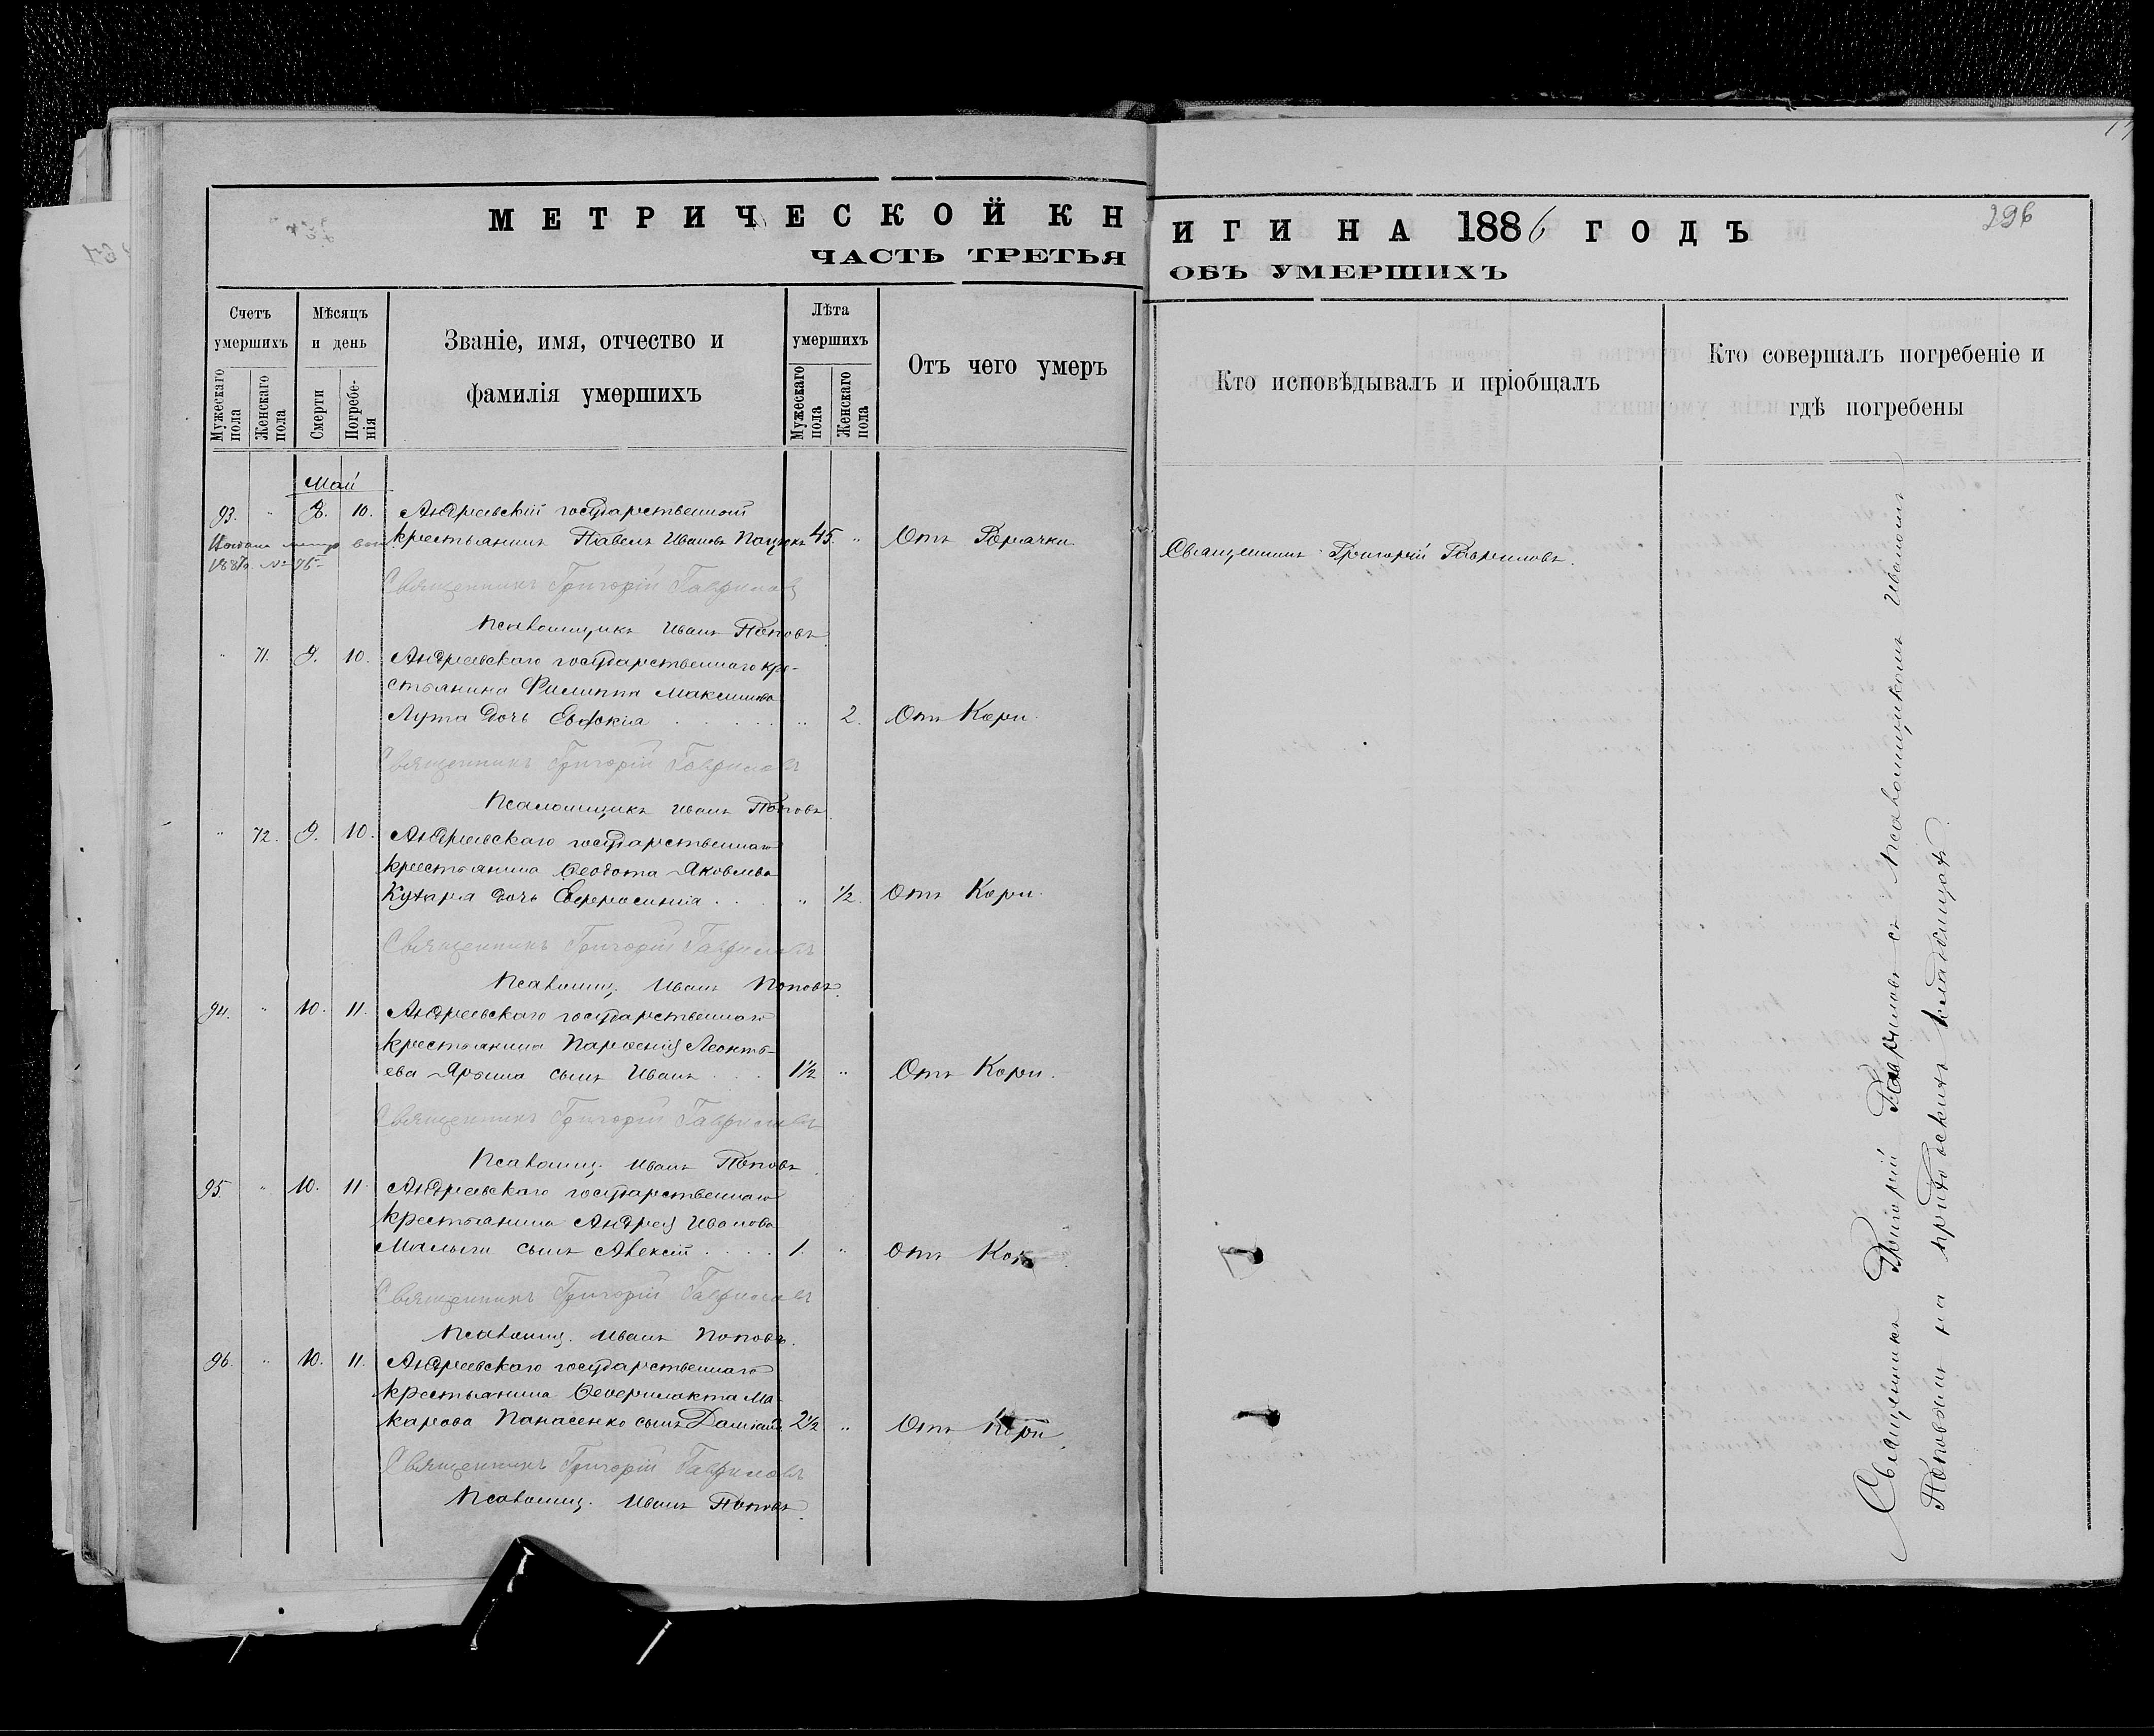 296
МЕТРИЧЕСКОЙ КНИГИ НА 1886 ГОДЪ
ЧАСТЬ ТРЕТЬЯ ОБЪ УМЕРШИХЪ
Счетъ умершихъ
Мужескаго пола
Женскаго пола
Мѣсяцъ и день
Смерти
Погребенія
Званіе, имя, отчество и
фамилія умершихъ
Лѣта умершихъ
Мужескаго пола
Женскаго пола
Отъ чего умеръ
Кто исповѣдывалъ и пріобщалъ
Кто совершалъ погребеніе и
гдѣ погребены
Май
93. " 8. 10. Андреевскій государственный
крестьянинъ Павелъ Ивановъ Пацюкъ 45. " Отъ Горячки Священникъ Григорій Гавриловъ.
Священникъ Григорій Гавриловъ
Псаломщикъ Иванъ Поповъ
" 71. 9. 10. Андреевскаго государственнаго кре-
стьянина Филиппа Максимова
Лута дочь Евдокія " 2. Отъ Кори.
Священникъ Григорій Гавриловъ
Псаломщикъ Иванъ Поповъ
" 72. 9. 10. Андреевскаго государственнаго
крестьянина Ѳеодота Яковлева
дочь Евфросинія " 1/2. Отъ Кори.
Священникъ Григорій Гавриловъ
Псаломщ. Иванъ Поповъ.
94. " 10. 11. Андреевскаго государственнаго
крестьянина Парѳенія Леонть-
ева сынъ Иванъ 1 1/2 " Отъ Кори.
Священникъ Григорій Гавриловъ
Псаломщ. Иванъ Поповъ
95. " 10. 11. Андреевскаго государственнаго
крестьянина Андрея Иванова
Малыги сынъ Алексій 1. " Отъ
Священникъ Григорій Гавриловъ
Псаломщ. Иванъ Поповъ.
96. " 10. 11. Андреевскаго государственнаго
крестьянина Ѳеофилакта Ма-
карова Панасенко сынъ Даміанъ 2 1/2 " Отъ Кори.
Священникъ Григорій Гавриловъ
Псаломщ. Иванъ Поповъ.
Священникъ Григорій Гавриловъ съ Псаломщикомъ Иваномъ
Поповымъ на приходскихъ кладбищахъ.